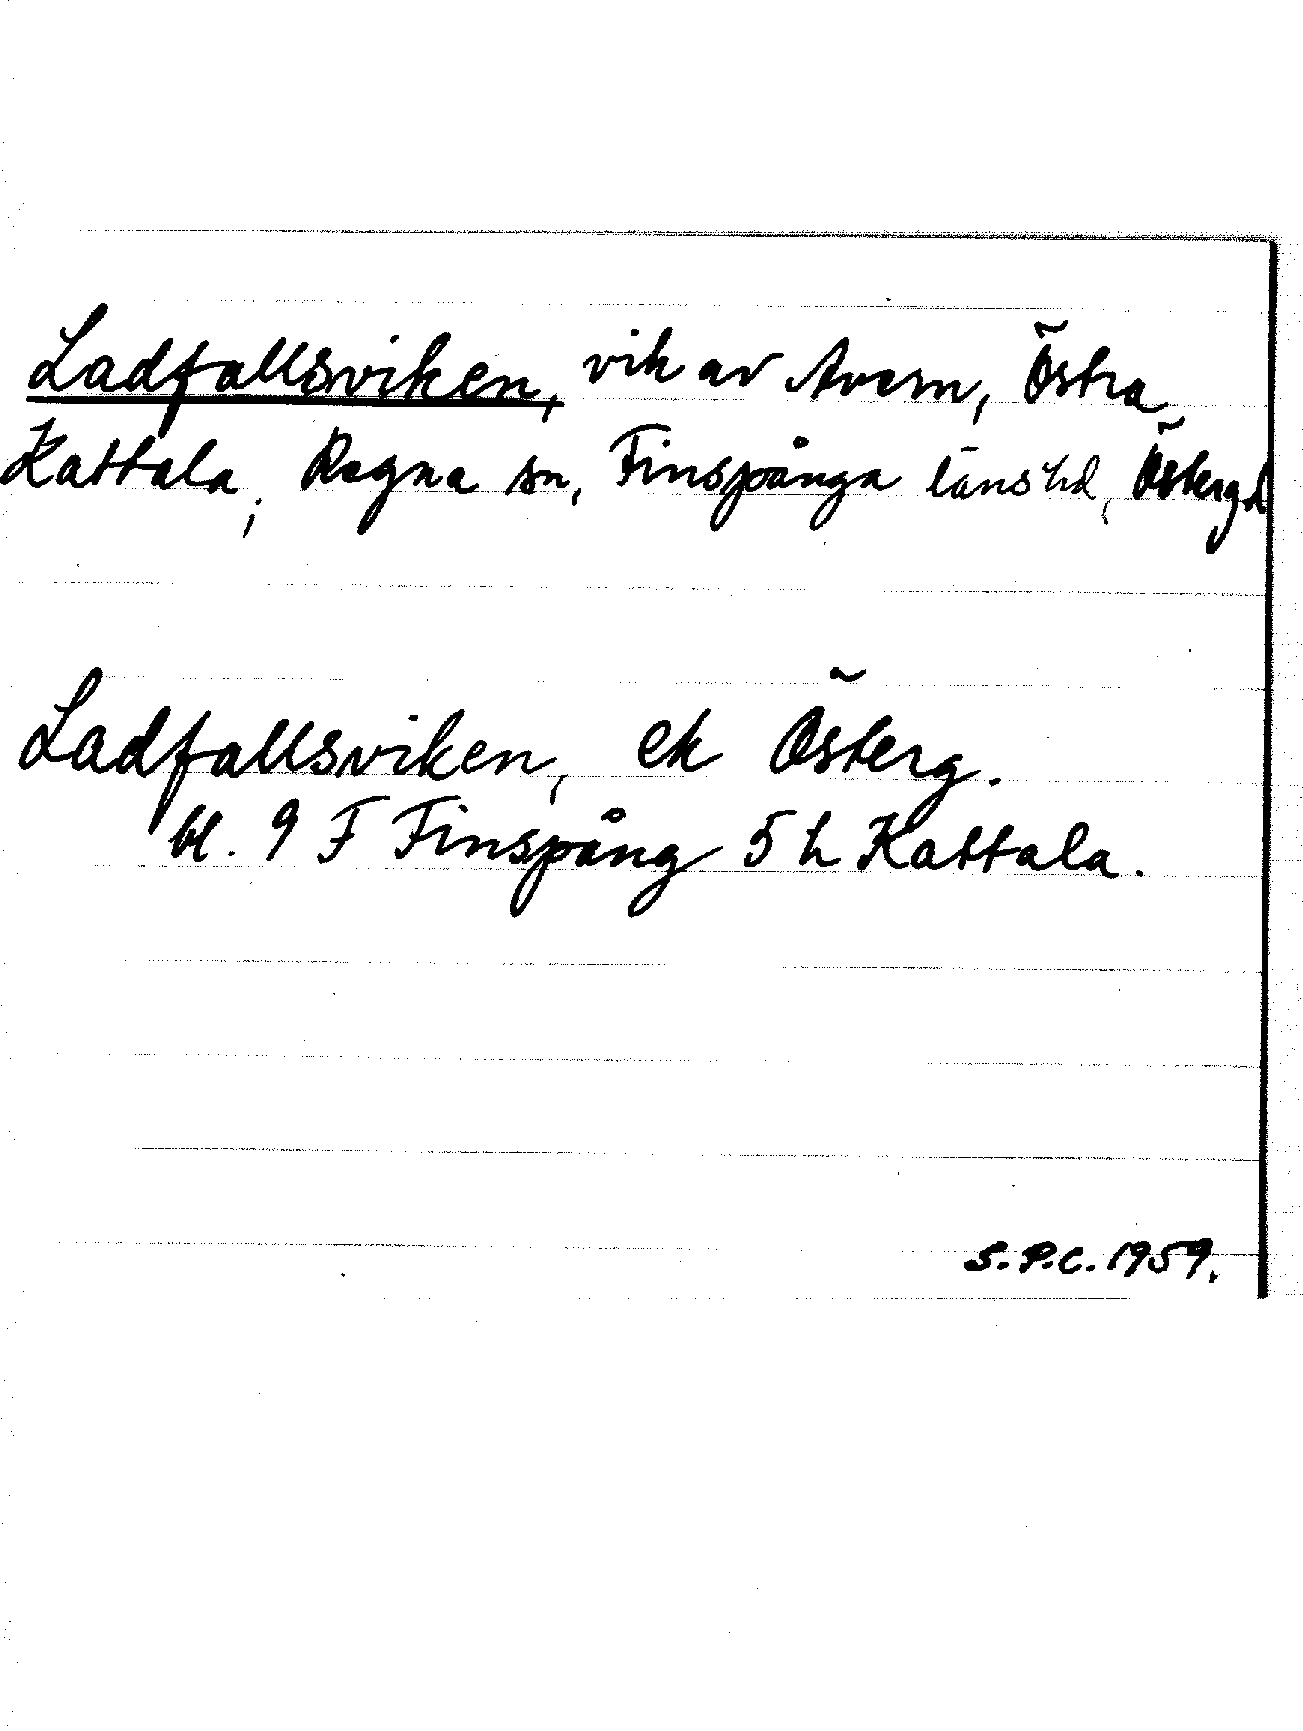 Ladfallsviken, vik av Avern, Östra
Kattala, Regna sn, Finspånga länshd, Östergd
Ladfallsviken, ek Österg.
bl. 9 F Finspång 5 h Kattala.
S.P.C. 1959.